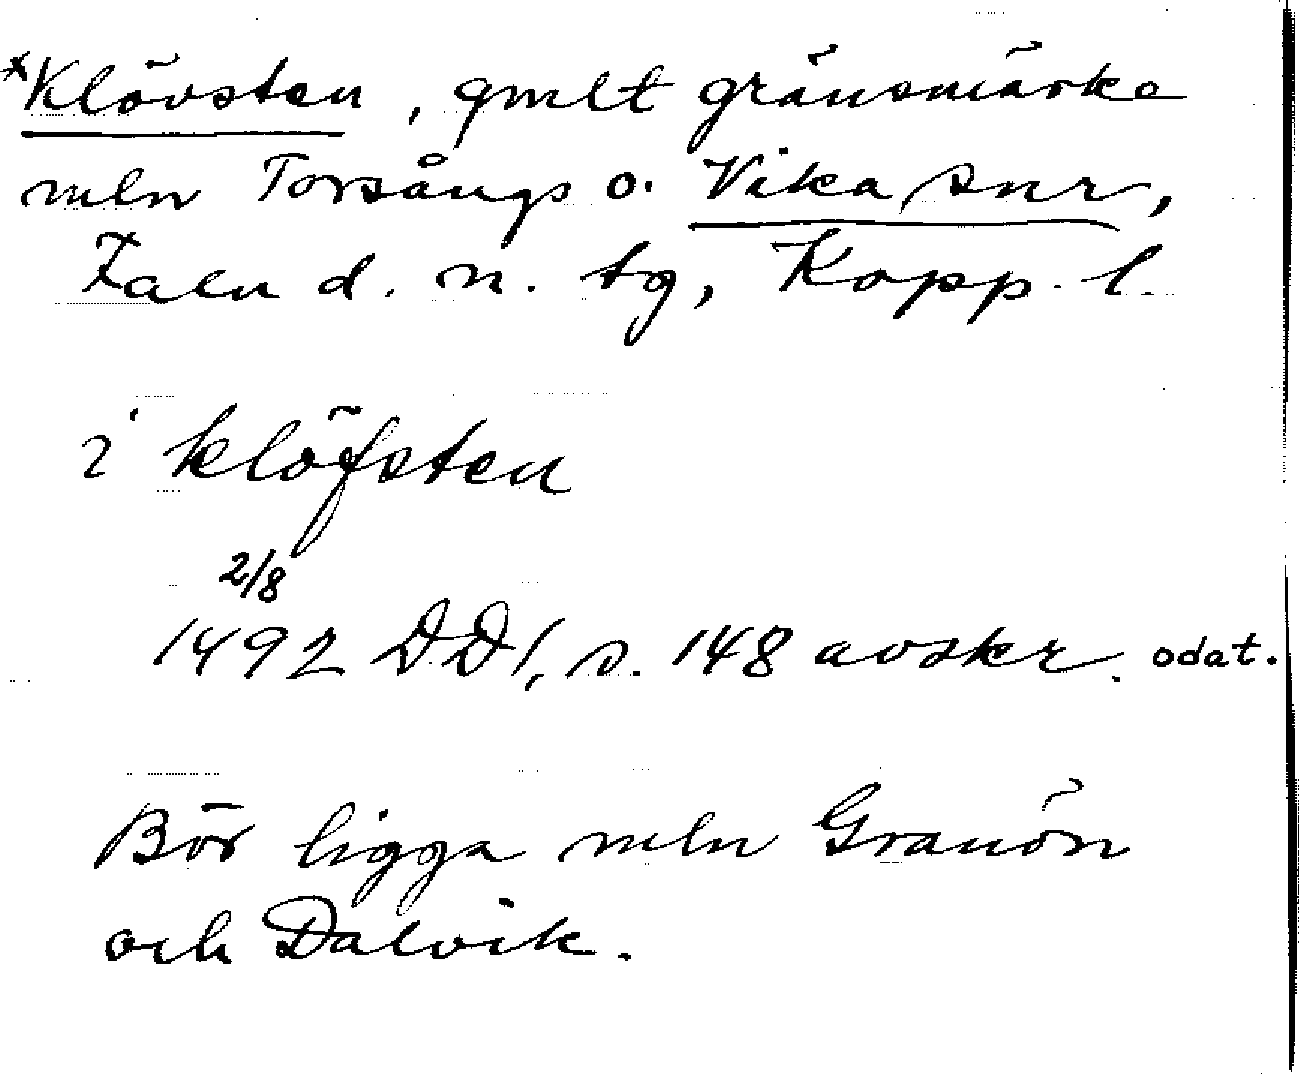 *Klövsten, gmlt gränsmärke
mln Torsångs o. Vika snr,
Falu d. n. tg, Kopp. l.
i klöfsten
2/8
1492 DD 1, s. 148 avskr. odat.
Bör ligga mln Granön
och Dalvik.